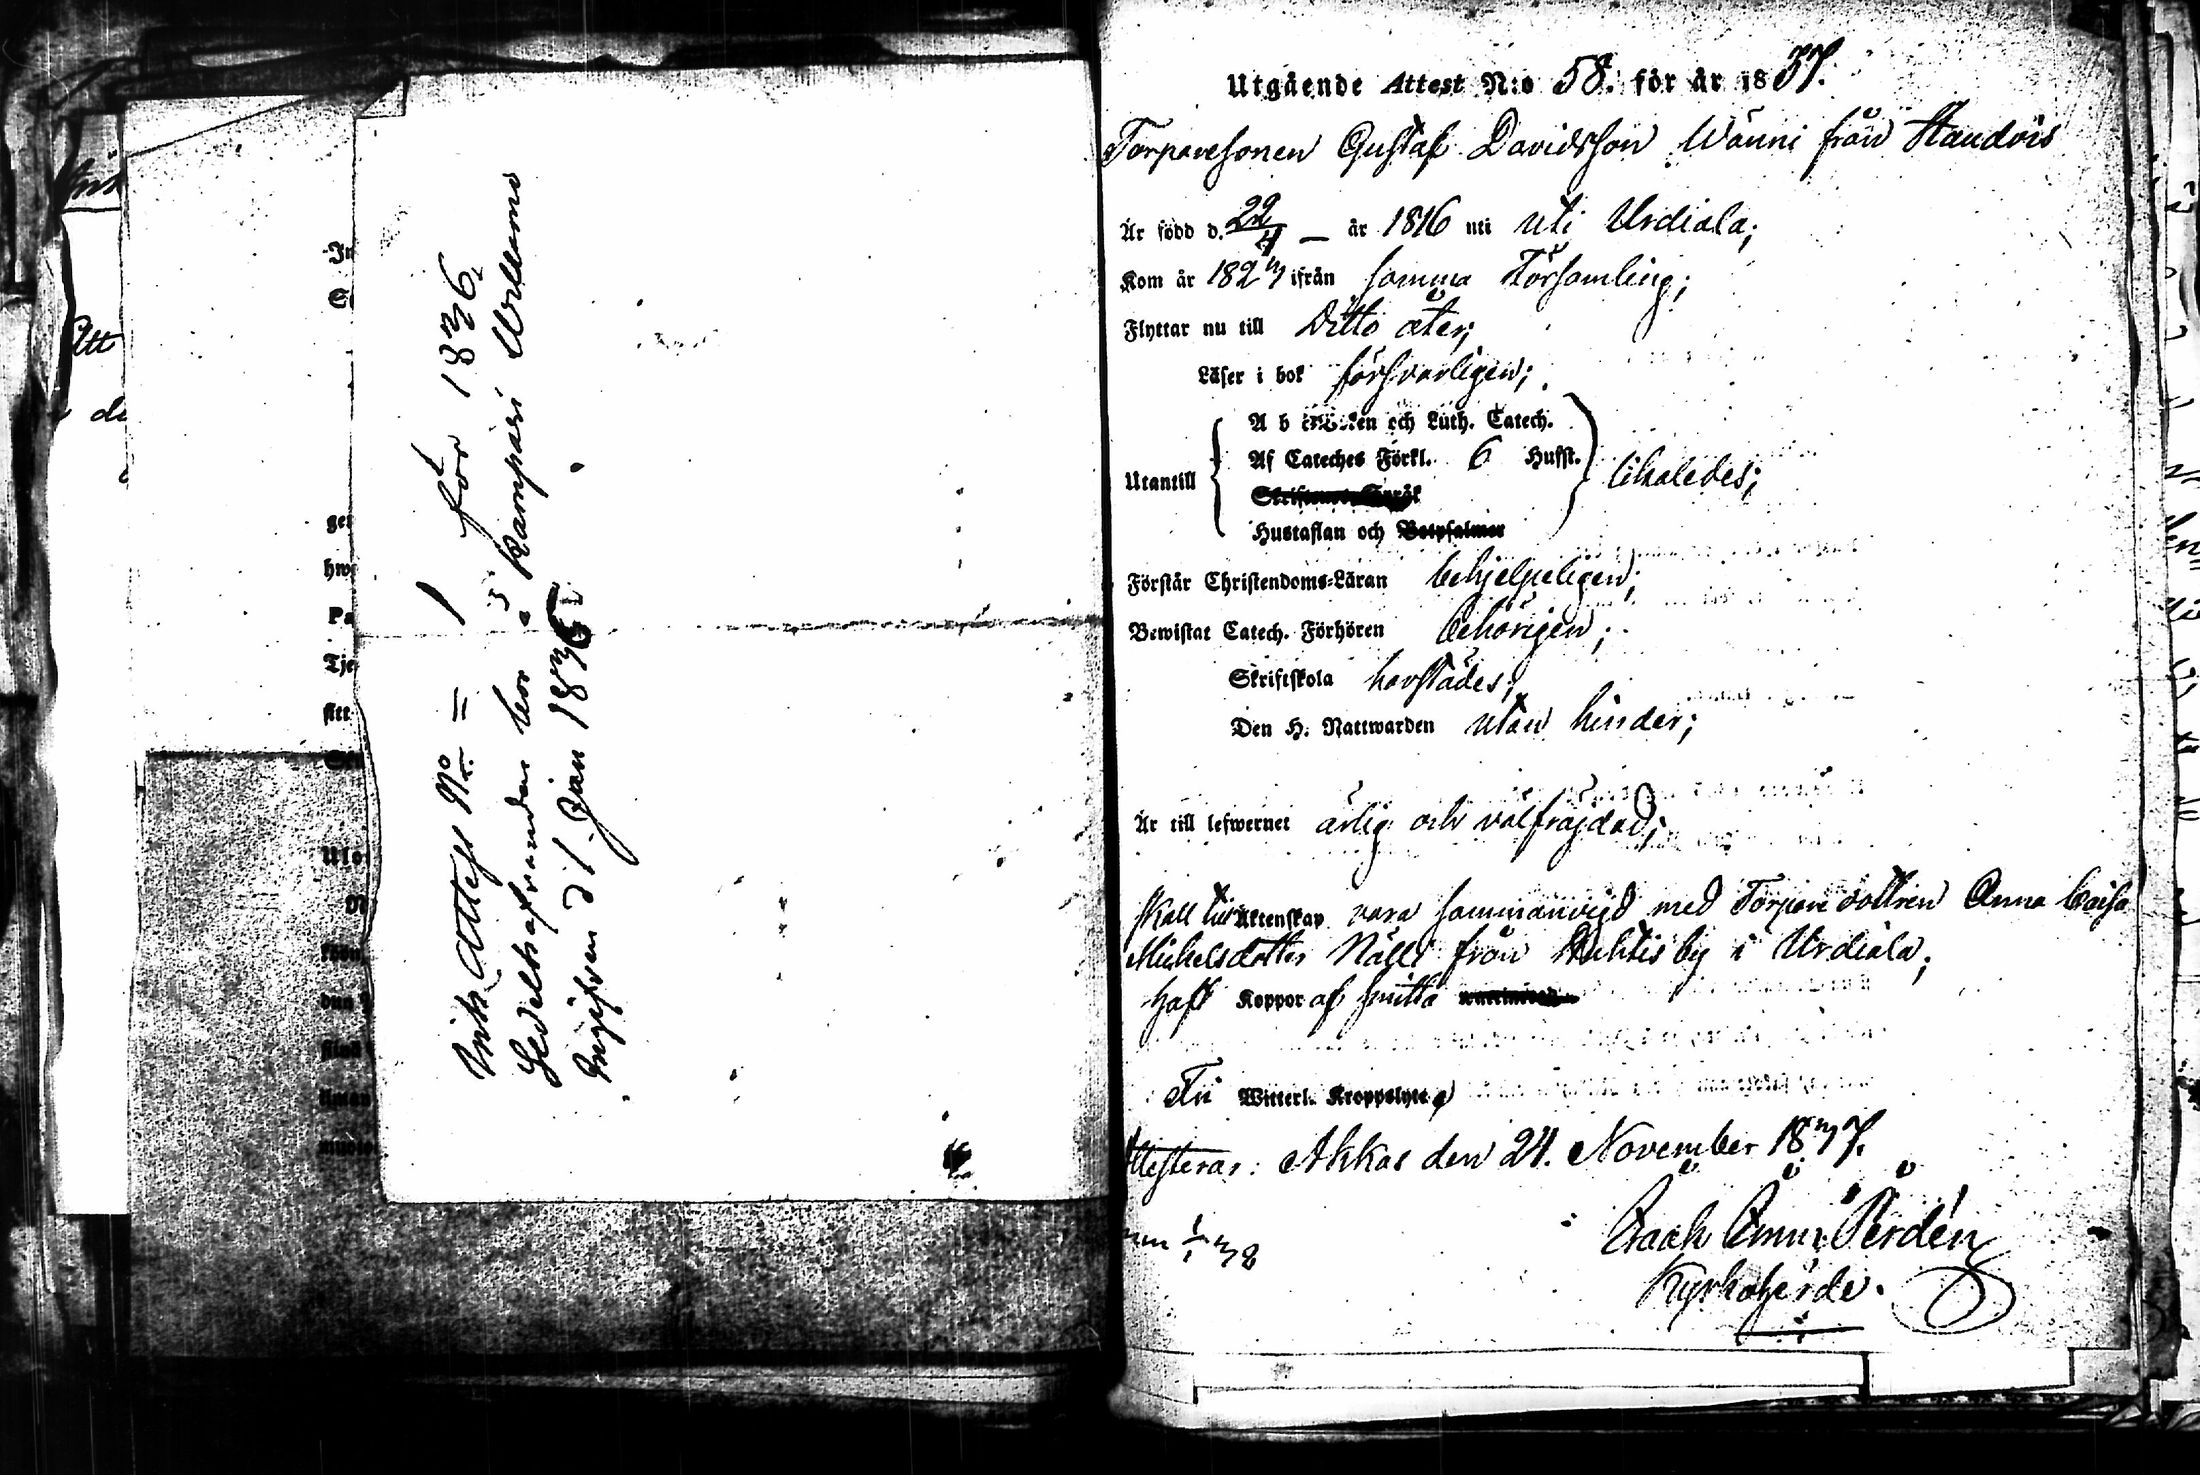 Ink. Attest No = 1 för 1836
Sedelhafvanden bor å Kampari
Ingifven d 1 Jan 1836
Utgående Attest N:o 58. för år 1837.
Torparesonen Gustaf Davidsson Wänni från
Är född d. 22/4 — år 1816 uti uti Urdiala;
Kom år 1823 ifrån samma Församling;
Flyttar nu till Ditto åter;
Läser i bok försvarligen;
A b c Boken och Luth. Catech.
Af Cateches Förkl. 6 Hufst.
Utantill likaledes;
Hustaflan och Botpsalmer
Förstår Christendoms-Läran behjelpeligen;
Bewistat Catech. Förhören behörigen;
Skriftskola havstädes;
Den H. Nattwarden utan hinder;
Är till lefwernet ärlig och välfräjdad;
skall till Äktenskap vara sammanvigd med Torpare dottren Anna Caisa
Michelsdotter Nälli från Huhtis by i Urdiala;
haft Koppor af smitta
Fri Witterl. Kroppslyte
Attesterar: Akkas den 24. November 1837.
1/1 38
Perdén
Kyrkoherde.